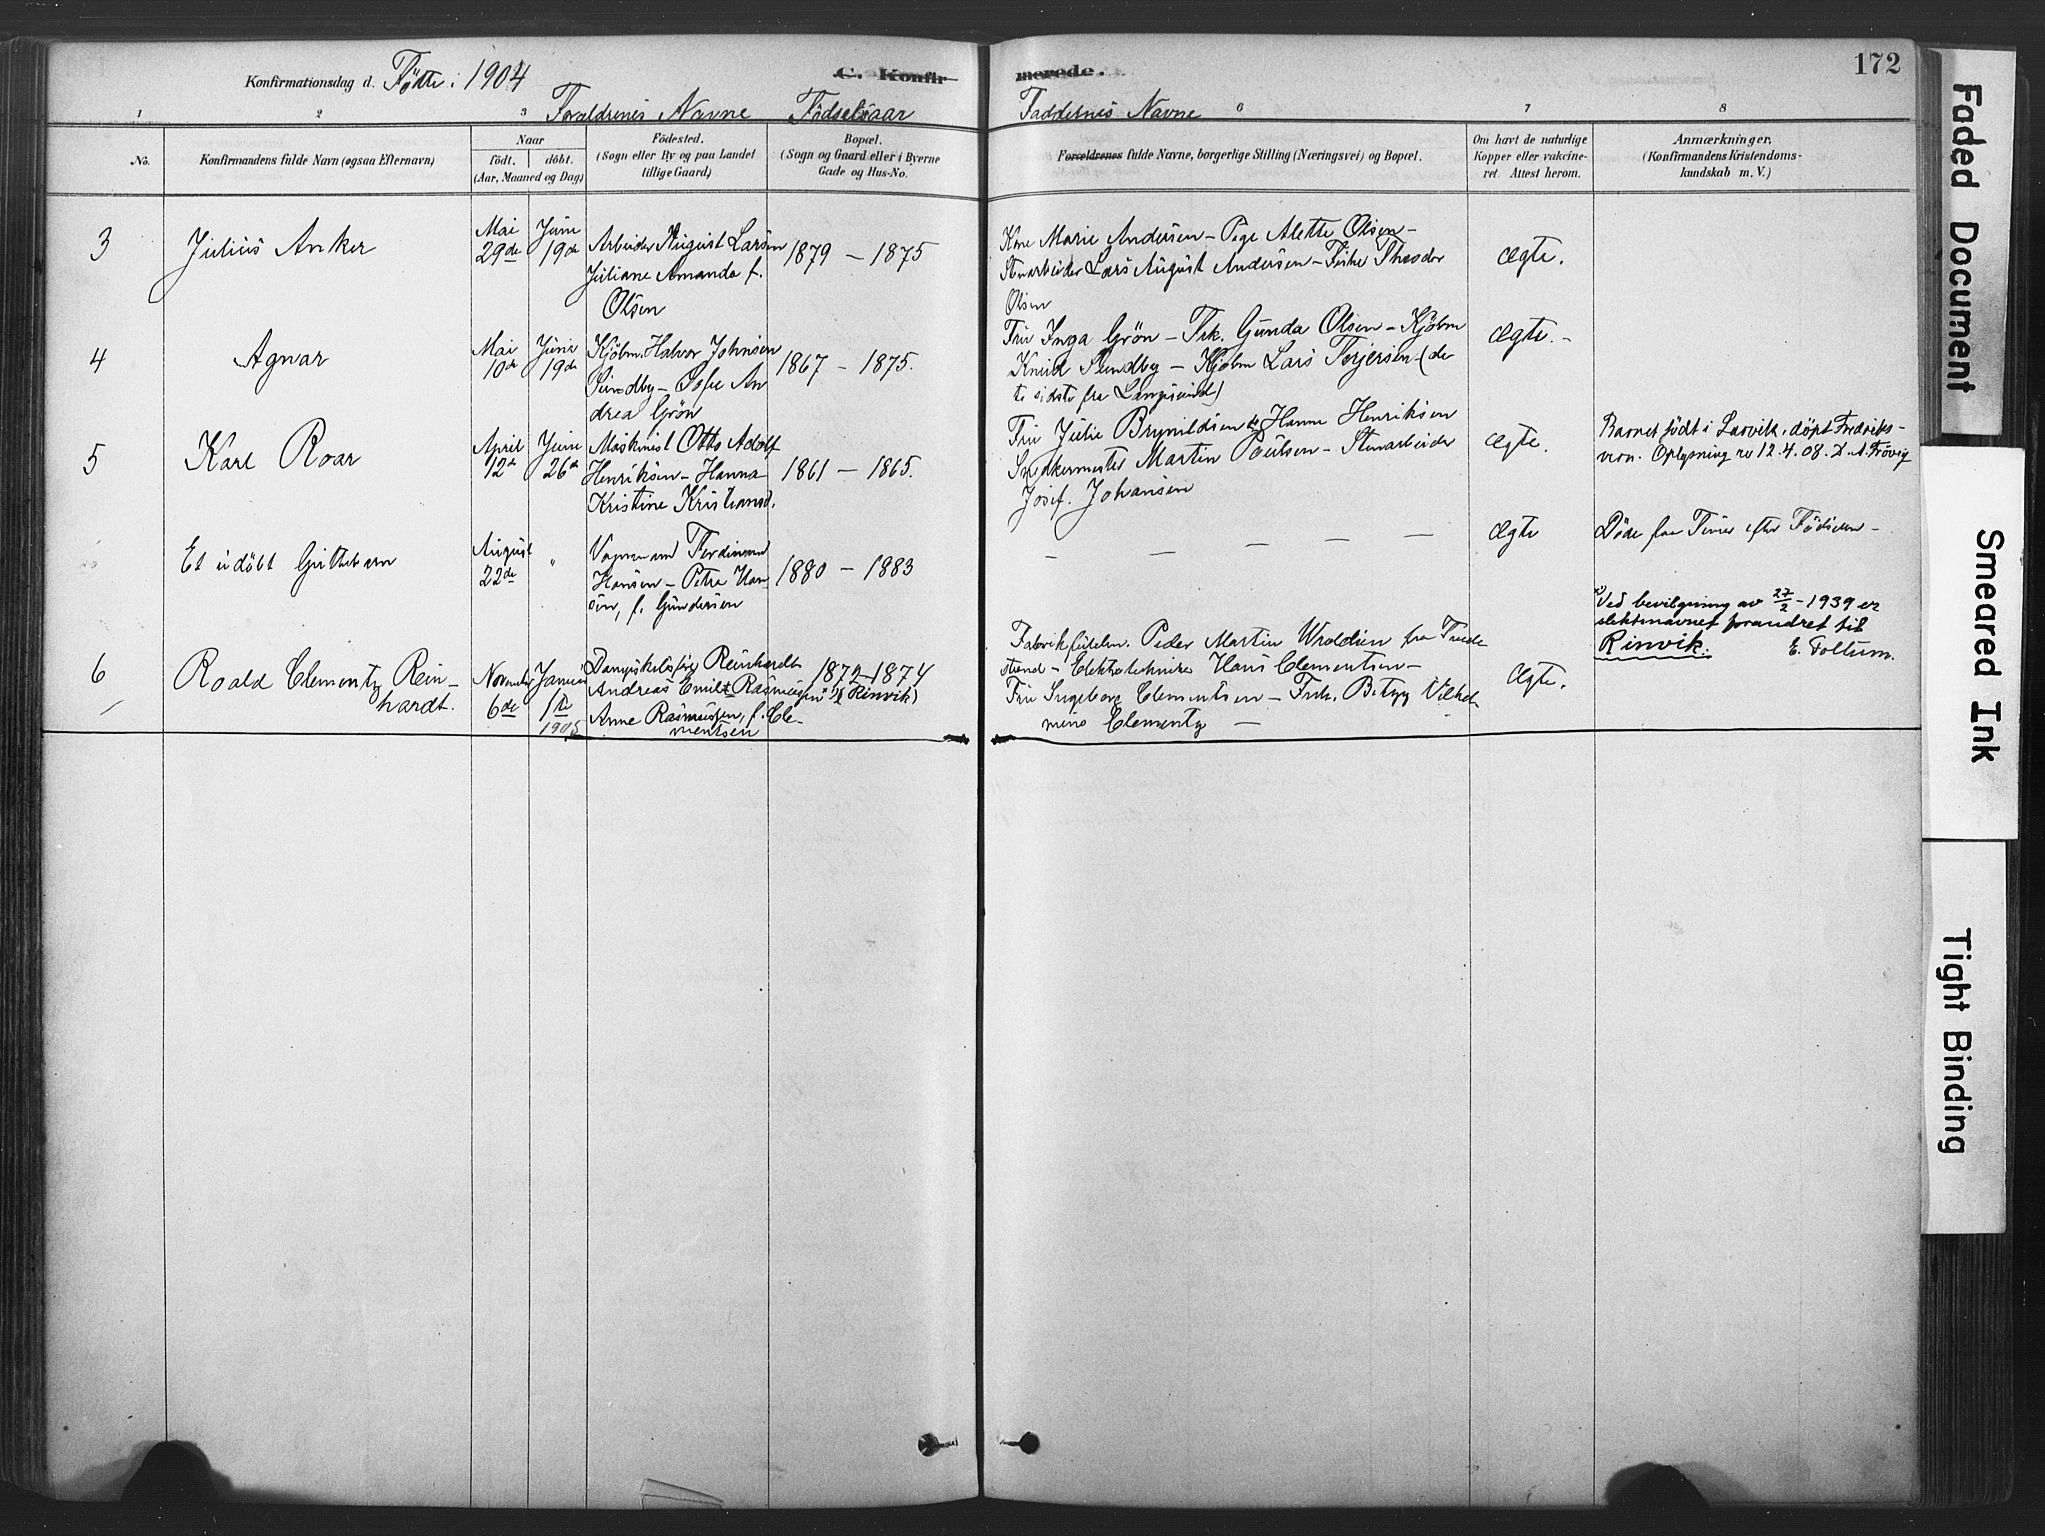 172
Konfirmationsdag d. Födte i 1904
C. Konfirmerede.
1 2 3 Forældrenes Navne Födselsaar Faddernes Navne 6 7 8
No.
Konfirmandens fulde Navn (ogsaa Efternavn)
Naar
födt. döbt.
(Aar, Maaned og Dag)
Födested.
(Sogn eller By og paa Landet
tillige Gaard)
Bopæl.
(Sogn og Gaard eller i Byerne
Gade og Hus-No.
Forældrenes fulde Navne, borgerlige Stilling (Næringsvei) og Bopæl.
Om havt de naturlige
Kopper eller vakcine-
ret. Attest herom.
Anmærkninger.
(Konfirmandens Kristendoms-
kundskab m. V.)
3
Julius Anker
Mai
29de
Juni
19de
Arbeider August Larsen
Juliane Amanda f.
Olsen
1879 – 1875
Kone Marie Andersen – Pige Alette Olsen –
Stenarbeider Lars August Andersen – Fisker Theodor
Olsen
Ægte.
4
Agnar
Mai
10de
Juni
19de
Kjöbm. Halvor Johnsen
Sundby – Sofie An
drea Grön
1867 – 1875.
Fru Inga Grön – Frk. Gunda Olsen – Kjöbm
Knud Sundby – Kjöbm Lars Terjersen – (de
to sidste fra Langesund)
Ægte. –
5
Kare Roar
April
12te
Juni
26de
Maskinist Otto Adolf
Henriksen – Hanna
Kristine Kristiansd.
1861 – 1865.
Fru Julie Brynildsen Hanne Henriksen
Snekkermester Martin Paulsen – Stenarbeider
Josef. Johansen
Ægte.
Barnet födt i Larvik, döpt Fredriks-
vern. Oplysning av 12.4.08.
Et udöbt Guttebarn
August
22de
"
Vognmand Ferdinand
Hansen – Petra Han
sen, f. Gundersen
1880 – 1883
– – – – –
Ægte
Döde faa Timer efter Födselen –
6
Roald Clementz Rein-
hardt.
November
6de
Januar
1ste
1905
Dampskibsförer Reinhardt
Andreas Emil Rasmussen x) (Rinvik)
Anne Rasmussen, f. Cle-
mentsen
1872–1874
Peder Martin Wroldsen fra Tvede
strand – Elektrotekniker Hans Clementsen –
Fru Ingeborg Clementsen – Frk. Betzy Vilhel
mine Clementz –
Ægte.
x) Ved bevilgning av 27/2 – 1939 er
slektsnavnet forandret til
Rinvik. E. Foltum.
Faded Document
Smeared Ink
Tight Binding